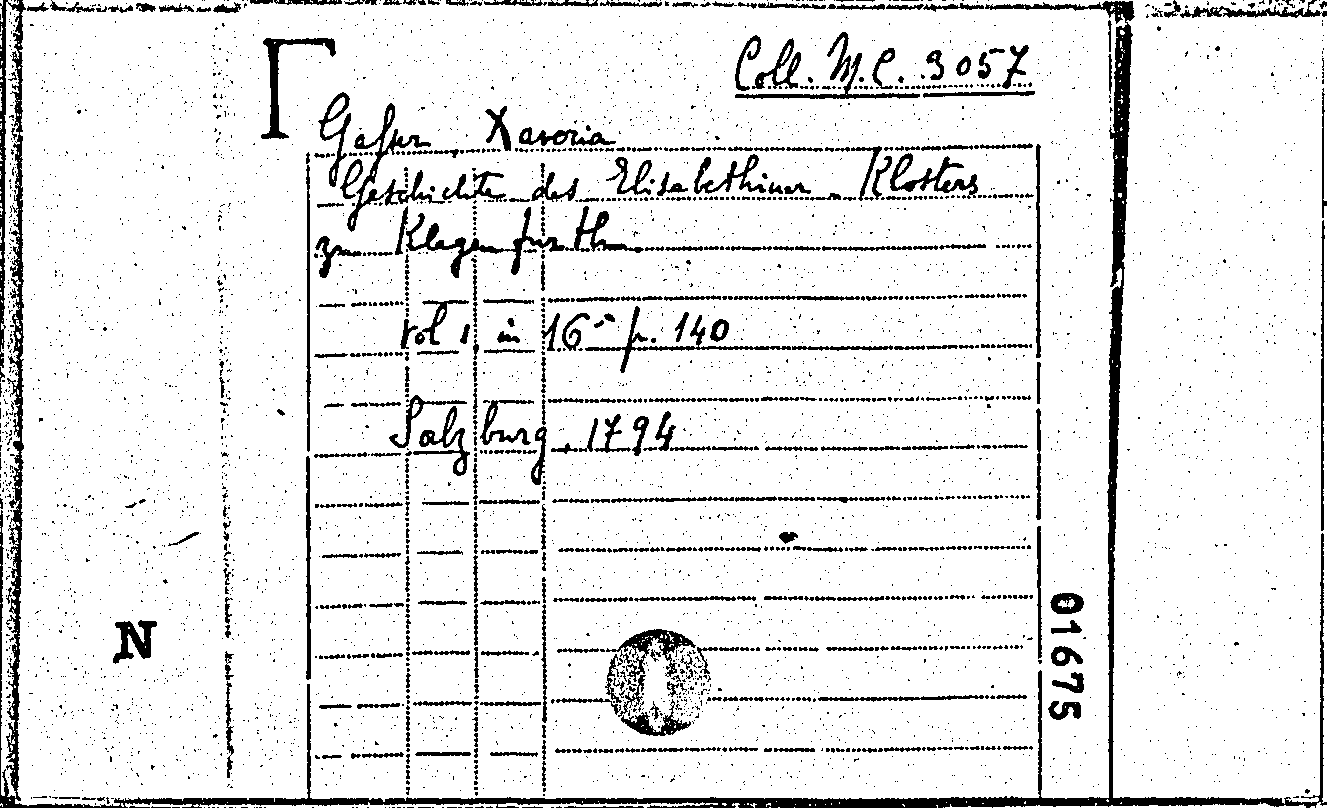 Coll. M.C. 3057
Gasser, Xaveria
Geschichte des Elisabethiner-Klosters
zu Klagenfurth.
vol 1 in 16° p. 140
Salzburg, 1794
N
01675